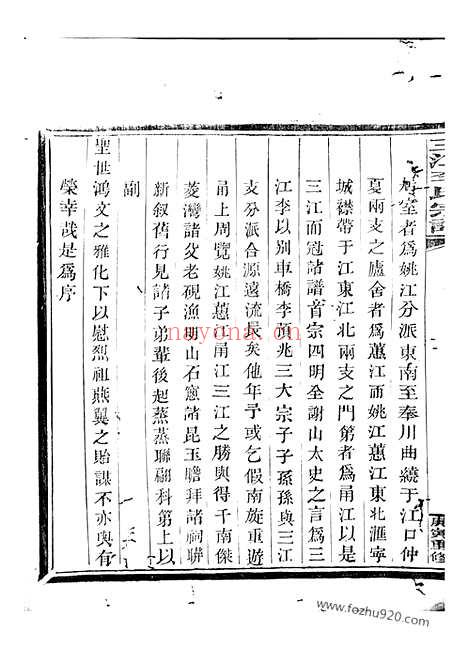 三江李氏宗譜
室者為姚江分派東南至奉川曲繞于江口仲
夏兩支之廬舍者為蕙江而姚江蕙江東北滙寧
城襟帶于江東江北兩支之門第者為甬江以是
三江而冠諸譜首宗四明全謝山太史之言為三
江李以別車橋李碩兆三大宗子子孫孫與三江
支分派合源遠流長矣他年予或乞假南旋重遊
甬上周覽姚江蕙江甬江三江之勝與得千南傑
菱灣諸父老硯漁明山石窻諸昆玉瞻拜諸祠聯
新叙舊行見諸子弟輩後起蒸蒸聯翩科第上以
副
聖世鴻文之雅化下以慰烈祖燕翼之貽謀不亦與有
榮幸哉是為序
重修
nayona.cn
www.fozhu920.com